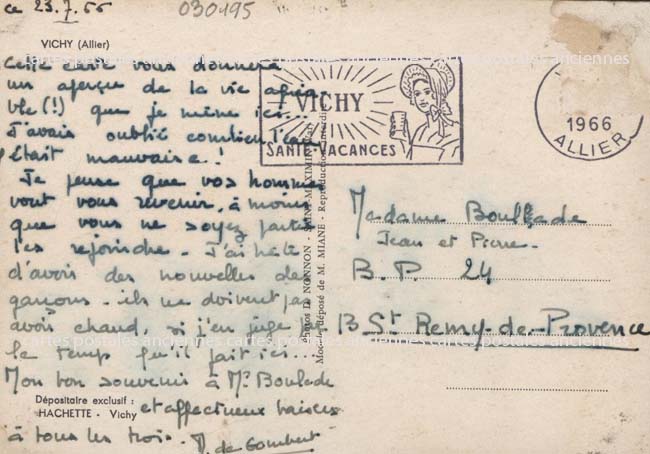 ce 23.7.66
030195
VICHY (Allier)
Cette carte vous donnera
un aperçu de la vie agréa-
ble (!) que je mène ici...
J'avais oublié combien l'eau
était mauvaise!
Je pense que vos hommes
vont vous revenir, à moins
que vous ne soyez partie
les rejoindre. J'ai hâte
d'avoir des nouvelles des
garçons. ils ne doivent pas
avoir chaud, si j'en juge
le temps qu'il fait ici...
Mon bon souvenir à Mr. Boulade
et affectueux baisers
à tous les trois.
de Gombert
Dépositaire exclusif :
HACHETTE - Vichy
Photos D. NONNON - SAINT-MAXIMIN
Modèle déposé de M. MIANE - Reproduction interdite
VICHY
SANTÉ VACANCES
1966
ALLIER
Madame Boullade
Jean et Pierre.
B.P. 24
13 St Remy-de-Provence
cartes postales anciennes